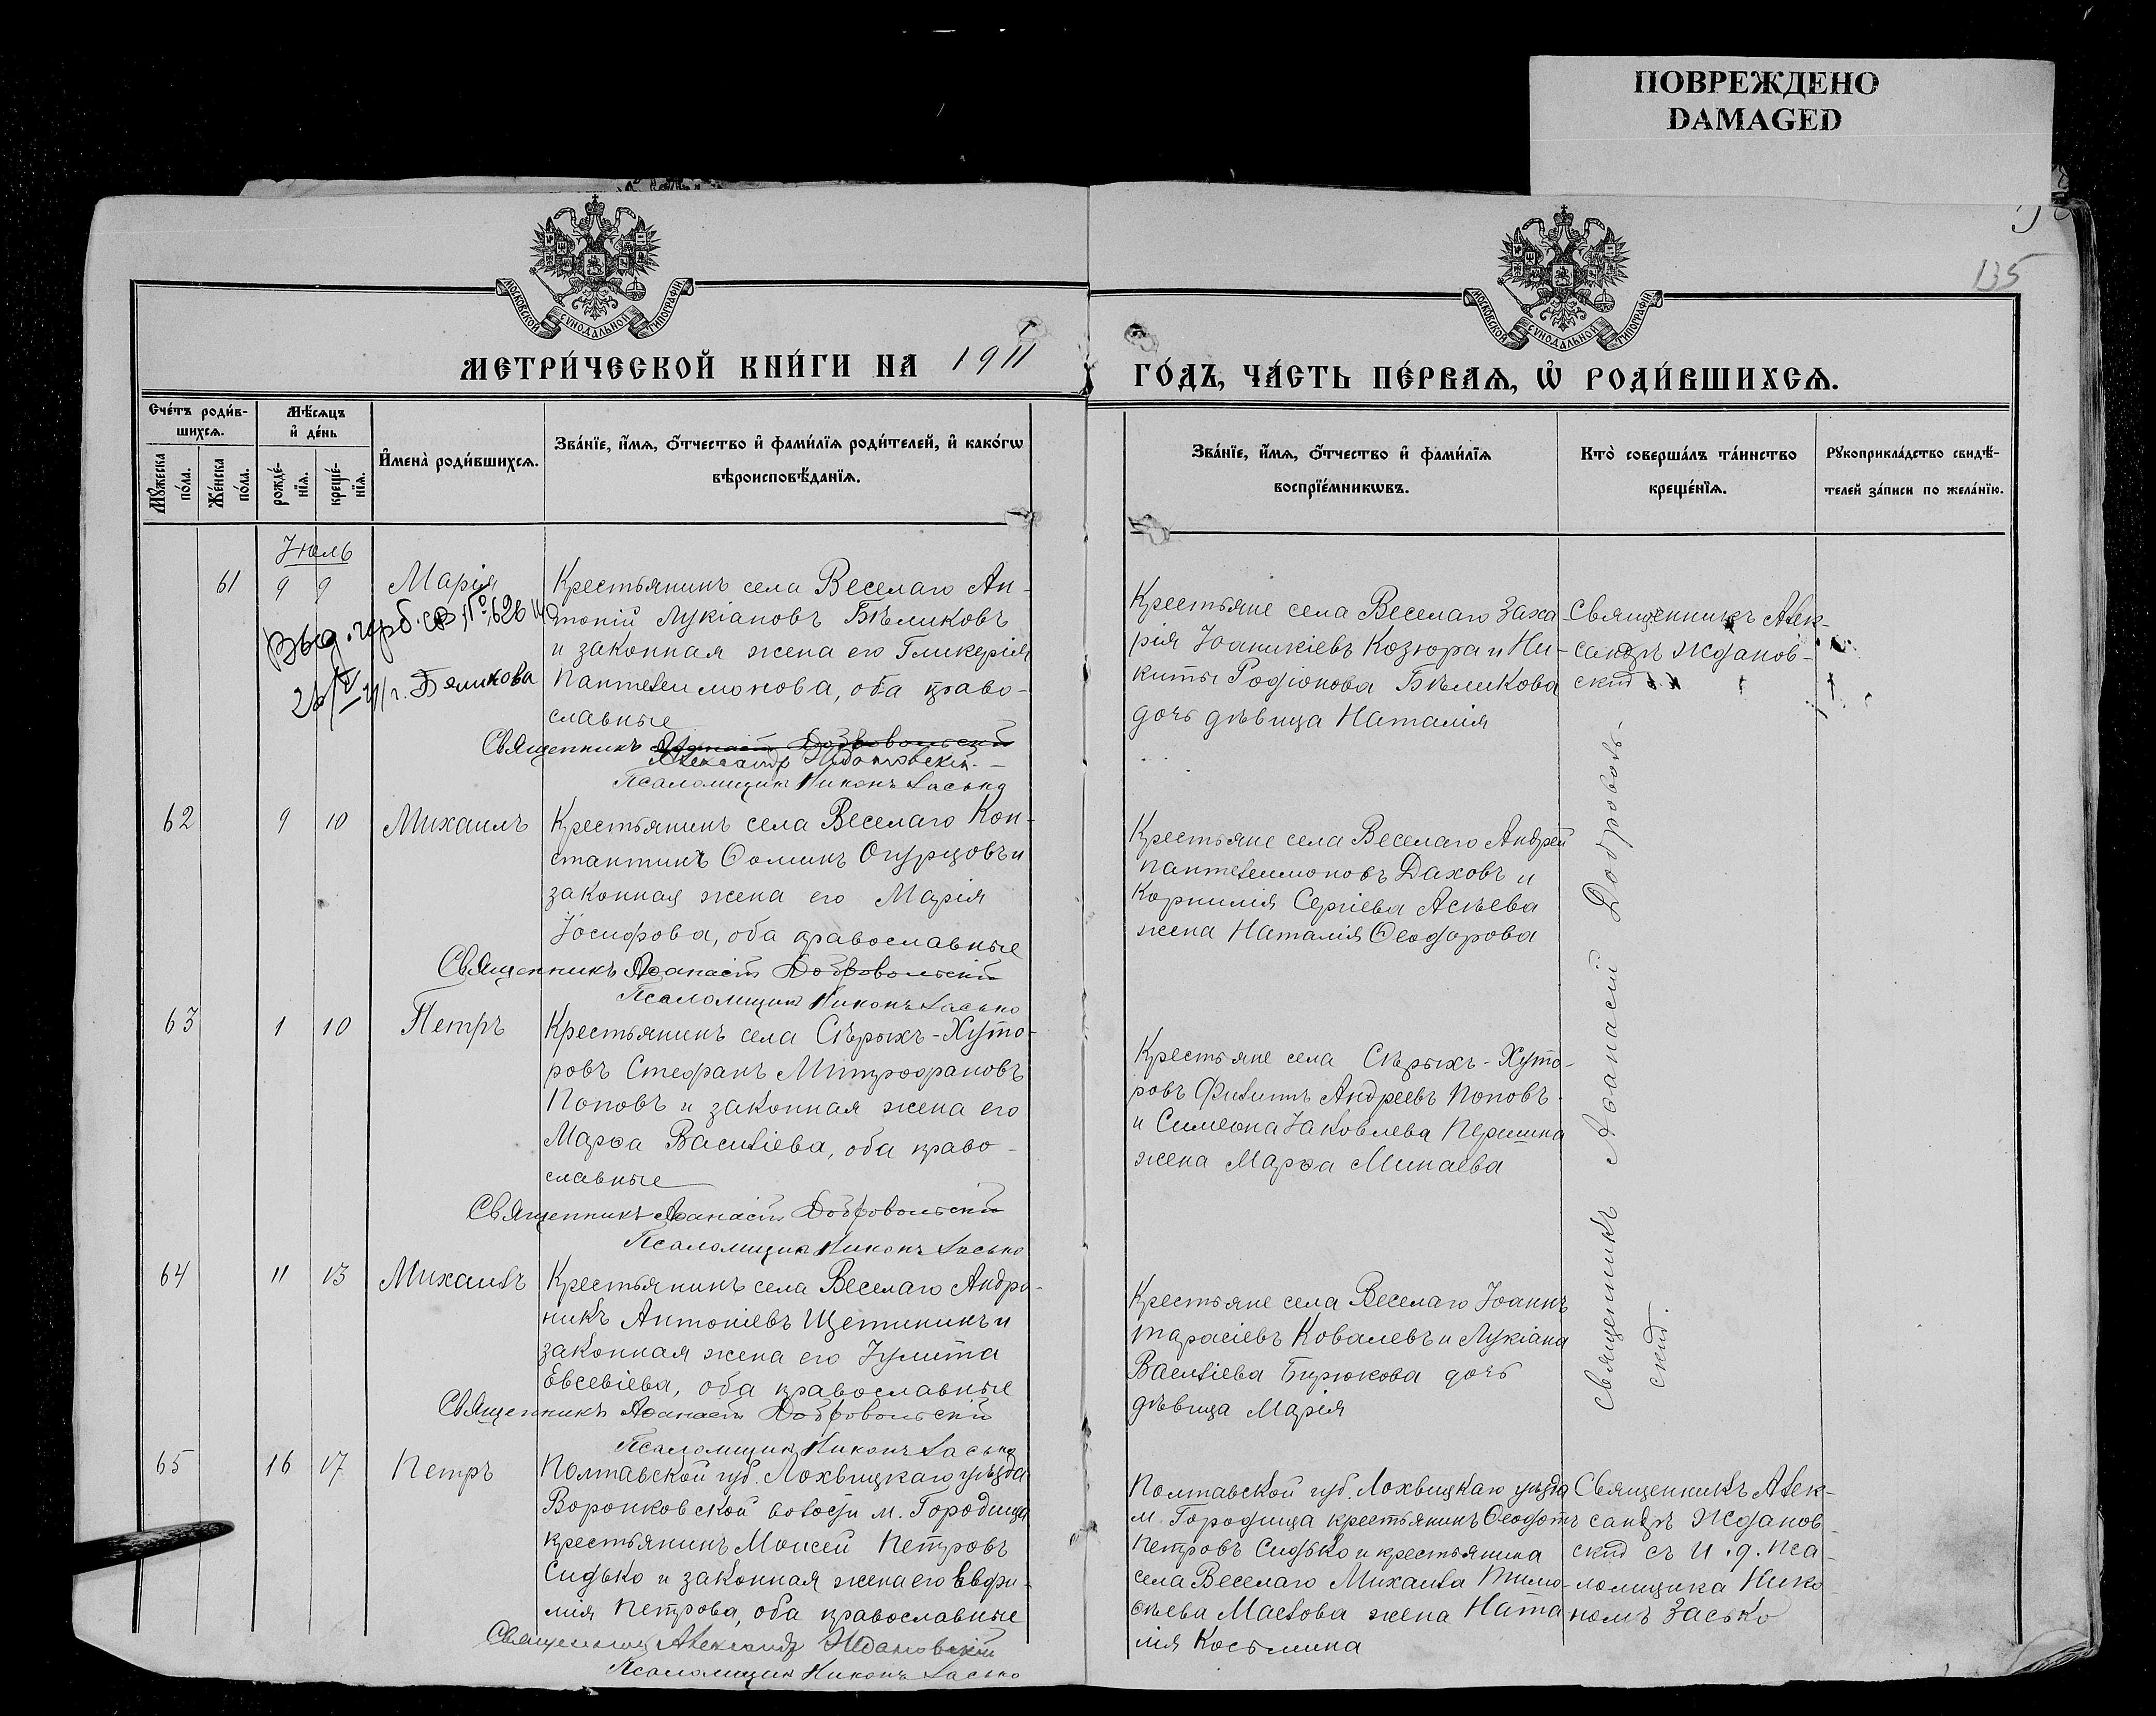 ПОВРЕЖДЕНО
DAMAGED
135
МОСКОВСКОЙ СѴНОДАЛЬНОЙ ТИПОГРАФІИ
МОСКОВСКОЙ СѴНОДАЛЬНОЙ ТИПОГРАФІИ
МЕТРИ́ЧЕСКОЙ КНИ́ГИ НА 1911
ГО́ДЪ, ЧА́СТЬ ПЕ́РВАѦ, Ѡ҆ РОДИ́ВШИХСѦ.
Сче́тъ роди́в-
шихсѧ.
Мꙋ́жеска по́ла.
Же́нска по́ла.
Мѣ́сѧцъ
и҆ де́нь
рожде́-
нїѧ.
креще́-
нїѧ.
И҆мена̀ роди́вшихсѧ.
Зва́нїе, и҆́мѧ, ѻ҆́тчество и҆ фами́лїѧ роди́телей, и҆ како́гѡ
вѣроисповѣ́данїѧ.
Зва́нїе, и҆́мѧ, ѻ҆́тчество и҆ фами́лїѧ
воспрїе́мникѡвъ.
Кто̀ соверша́лъ та́инство
креще́нїѧ.
Рꙋкоприкла́дство свидѣ́-
телей за́писи по жела́нїю.
Іюль
61 9 9 Марія
Крестьянинъ села Веселаго Ан-
тоній Лукіановъ Бѣликовъ
и законная жена его Гликерія
Пантелеимонова, оба право-
славные
Выд. герб. св. № 626
Беликова
Священникъ Аѳанасій Добровольскій
Александр Ждановскій.
Псаломщик Никонъ Засько
Крестьяне села Веселаго Заха-
рія Іоаникіевъ Козюра и Ни-
киты Родіонова Бѣликова
дочь дѣвица Наталія
Священникъ Алек-
сандръ Жданов-
скій
62 9 10 Михаилъ
Крестьянинъ села Веселаго Кон-
стантинъ Ѳоминъ Огурцовъ и
законная жена его Марія
Іосифова, оба православные
Священникъ Аѳанасій Добровольскій
Псаломщик Никонъ Засько
Крестьяне села Веселаго Андрей
Пантелеимоновъ Даховъ и
Корнилія Сергіева Асѣева
жена Наталія Ѳеодорова
Священникъ Аѳанасій Доброволь-
скій.
63 1 10 Петръ
Крестьянинъ села Сѣрыхъ-Хуто-
ровъ Стефанъ Митрофановъ
Поповъ и законная жена его
Марѳа Василіева, оба право-
славные
Священникъ Аѳанасій Добровольскій
Псаломщик Никонъ Засько
Крестьяне села Сѣрыхъ-Хуто-
ровъ Филиппъ Андреевъ Поповъ
и Симеона Іаковлева Першина
жена Марѳа Минаева
64 11 13 Михаилъ
Крестьянинъ села Веселаго Андро-
никъ Антоніевъ Щетининъ и
законная жена его Іулитта
Евсевіева, оба православные
Священникъ Аѳанасій Добровольскій
Псаломщик Никонъ Засько
Крестьяне села Веселаго Іоаннъ
Тарасіевъ Ковалевъ и Лукіана
Василіева Бирюкова дочь
дѣвица Марія
65 16 17 Петръ
Полтавской губ. Лохвицкаго уѣзда
Воронковской волости м. Городища
крестьянинъ Моисей Петровъ
Сидько и законная жена его Евфи-
мія Петрова, оба православные
Священникъ Александр Ждановскій
Псаломщик Никонъ Засько
Полтавской губ. Лохвицкаго уѣзда
м. Городища крестьянинъ Ѳеодотъ
Петровъ Сидько и крестьянина
села Веселаго Михаила Тимо-
ѳеева Маслова жена Ната-
лія Косьмина
Священникъ Алек-
сандръ Жданов-
скій съ и.д. пса-
ломщика Нико-
номъ Засько